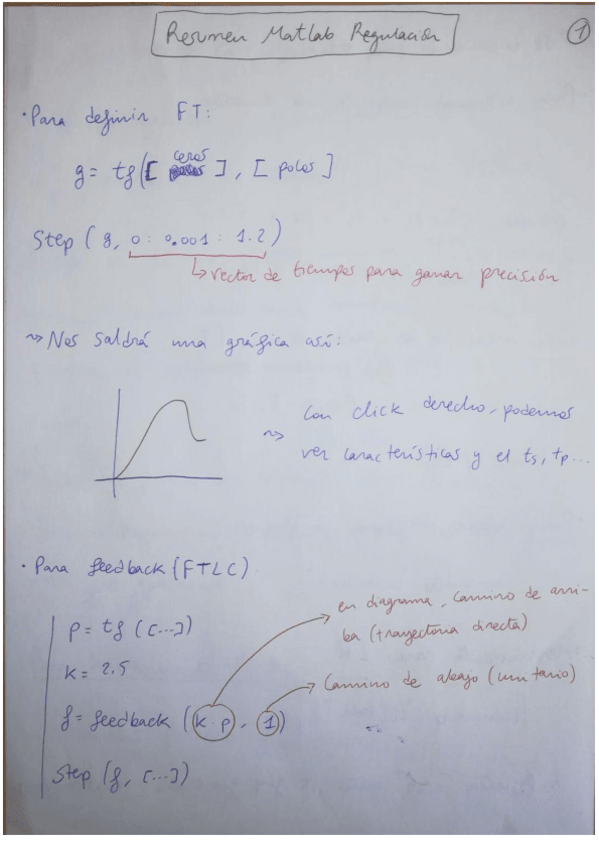 Resumen Matlab Regulación
1
· Para definir FT:
g = tf([ ceros ], [ polos ]
Step ( g, 0 : 0.001 : 1.2 )
↳ vector de tiempos para ganar precisión
~> Nos saldrá una gráfica así:
~> Con click derecho, podemos
ver características y el ts, tp...
· Para feedback (FTLC)
P = tf ([...])
K = 2.5
f = feedback (K·P, 1)
Step (f, [...])
en diagrama, camino de arri-
ba (trayectoria directa)
Camino de abajo (unitario)